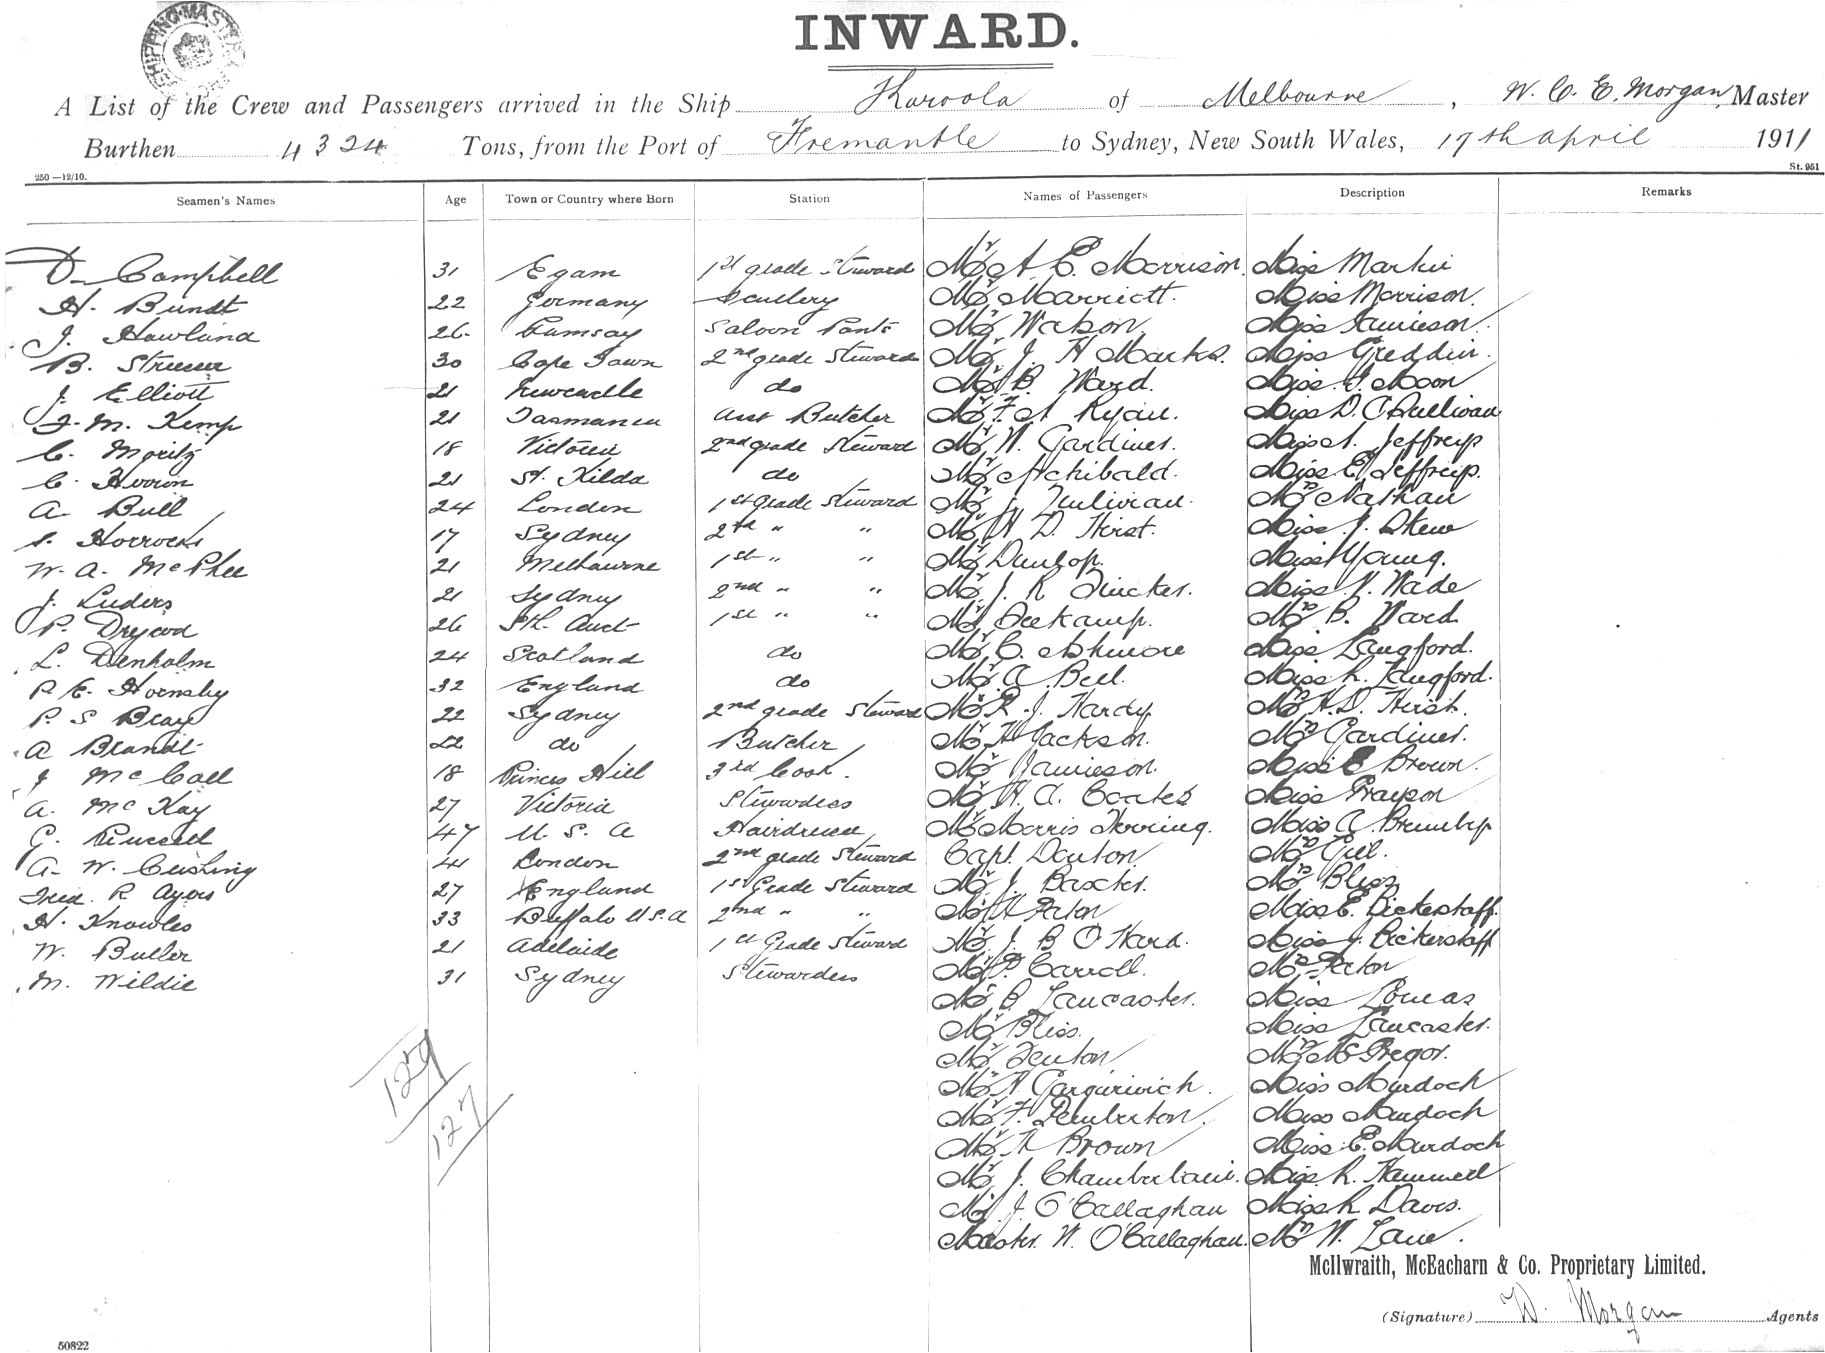 SHIPPING MASTER
INWARD.
A List of the Crew and Passengers arrived in the Ship Karoola of Melbourne, W. C. E. Morgan, Master
Burthen 4324 Tons, from the Port of Fremantle to Sydney, New South Wales, 17th April 1911
250—12/10. St. 951
Seamen's Names Age Town or Country where Born Station Names of Passengers Description Remarks
D. Campbell 31 Egam 1st grade Steward Mr A E. Morrison. Miss Martin
H. Bundt 22 Germany Scullery Mr Marriott. Miss Morrison.
J. Howland 26 Saloon Pants Mr Watson. Miss Jamieson.
B. 30 Cape Town 2nd grade Steward Mr J. H Marks. Miss Greddin.
J. Elliott 21 Newcastle do Mr B. Ward. Miss J. Moon
J. M. Kemp 21 Tasmania Asst Butcher Mr F. A Ryan. Miss D. O'Sullivan
C. Moritz 18 Victoria 2nd grade Steward Mr W. Gardiner. Miss A. Jeffreys
C. 21 St. Kilda do Mr Archibald. Miss E. Jeffreys.
A Bull 24 London 1st Grade Steward Mr J. Mrs Nathan
S. Horrocks 17 Sydney 2nd " " Mr H D. Hirst. Miss J. Skew
W. A. McPhee 21 Melbourne 1st " " Mr Dunlop. Miss Young.
J. Luders 21 Sydney 2nd " " Mr J. R Tucker. Miss V. Wade
P. 26 Sth. Aust 1st " " Mr Beekamp. Mrs B. Ward
L. Denholm 24 Scotland do Mr C. Ashmore Miss Langford.
P. E. Hornsby 32 England do Mr A Bell. Miss R. Langford.
P. S Bray 22 Sydney 2nd grade Steward Mr R. J. Hardy Mrs H. D. Hirst.
A Brandt 22 do Butcher Mr H Jackson. Mrs Gardiner.
J McCall 18 Princes Hill 3rd Cook. Mr Jamieson. Miss E Brown.
A. McKay 27 Victoria Stewardess Mr H. A. Coates Miss Grayson
G. Russell 47 U S. A Hairdresser Mr Morris Herring. Miss A. Brumby
A. W. Cushing 41 London 2nd grade Steward Capt. Denton. Mrs Gill.
Fred. R. Ayers 27 England 1st Grade Steward Mr J. Baxter. Mrs Bliss
H. Knowles 33 Buffalo U.S.A 2nd " " Mr H Paton Miss E. Bickerstaff.
W. Butler 21 Adelaide 1st Grade Steward Mr J. B O'Hara. Miss J. Bickerstaff
M. Wildie 31 Sydney Stewardess Mr P. Carroll. Mrs Paton
Mr B. Lancaster. Miss Loucas
Mr Bliss. Miss Lancaster.
Mr Fenton Mrs McGregor.
Mr N. Gargurivich. Miss Murdoch
Mr F. Pemberton. Miss Murdoch
Mr A Brown Miss E. Murdoch
Mr J. Chamberlain. Miss R. Hammell
Mr J. O'Callaghan Miss R Davis.
Master. W. O'Callaghan. Mrs W. Lane.
129
127
McIlwraith, McEacharn & Co. Proprietary Limited.
(Signature) W. Morgan Agents
50822